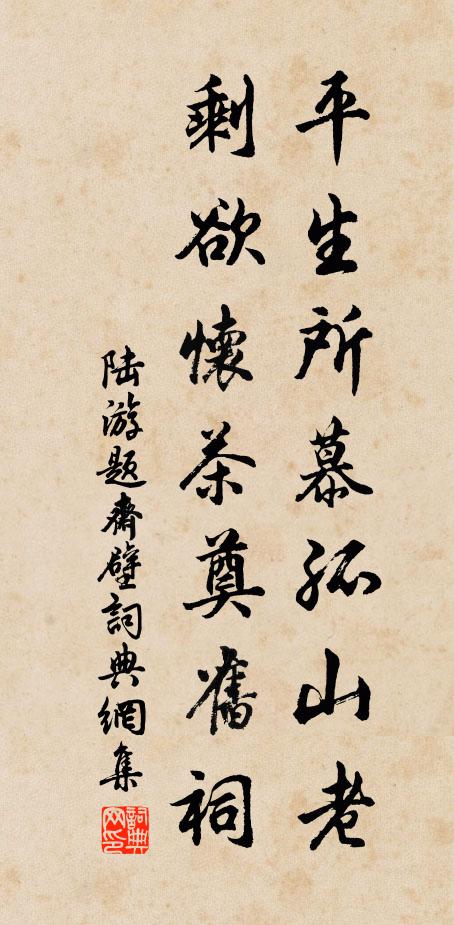 平生所慕孤山老
剩欲懷茶奠舊祠
陆游题齋壁詞典網集
詞典网印